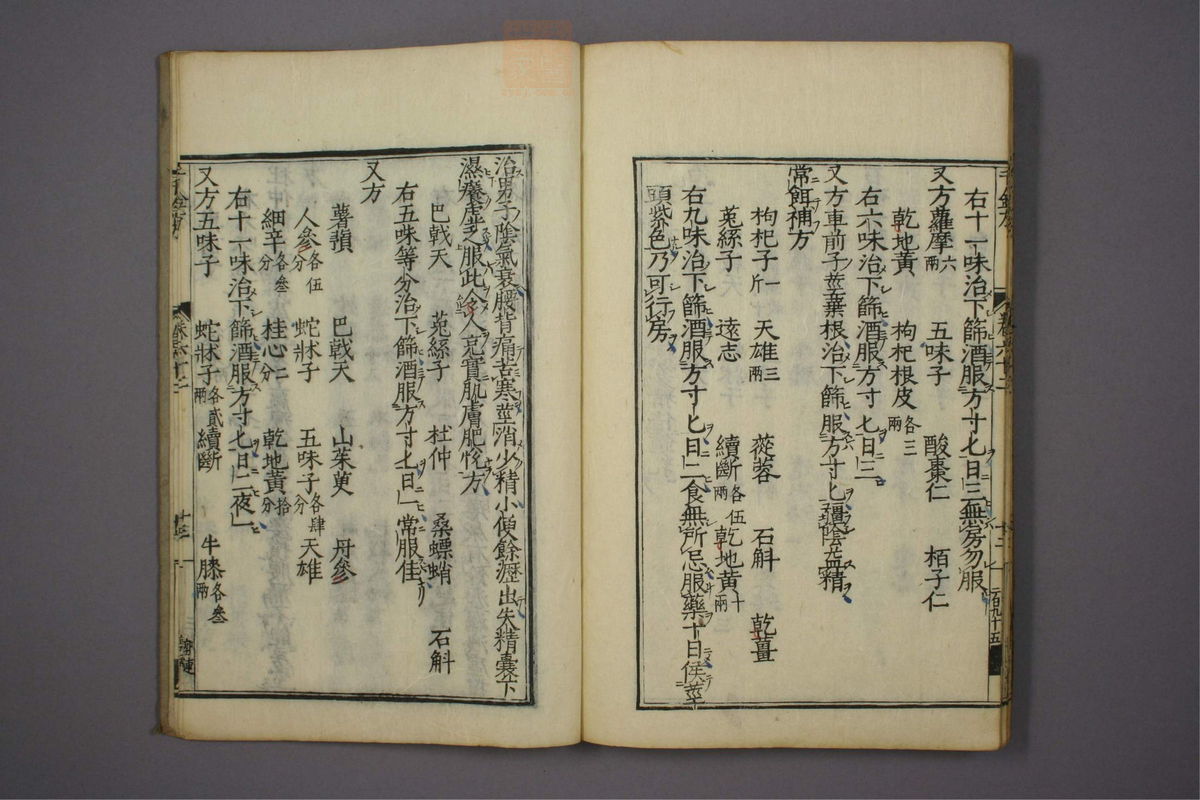 右十一味治下篩酒服方寸七日三無房勿服
又方蘿摩六兩　五味子　酸棗仁　栢子仁
乾地黃　枸杞根皮各三兩
右六味治下篩酒服方寸七日三
又方車前子莖葉根治下篩服方寸七彊陰益精
常餌補方
枸杞子一斤　天雄三兩　蓯蓉　石斛　乾薑
菟絲子　遠志　續斷各五兩　乾地黃十兩
右九味治下篩酒服方寸七日二食無所忌服藥十日候莖
頭紫色乃可行房
治男子陰氣衰腰背痛苦寒莖消少精小便餘瀝出失精囊下
濕癢虛乏服此令人充實肌膚肥悅方
巴戟天　菟絲子　杜仲　桑螵蛸　石斛
右五味等分治下篩酒服方寸七日一常服佳
又方
薯蕷　巴戟天　山茱萸　丹參
人參各伍分　蛇牀子　五味子各肆分　天雄
細辛各叁分　桂心二分　乾地黃拾分
右十一味治下篩酒服方寸七日二夜一
又方五味子　蛇牀子各貳兩　續斷　牛膝各叁兩
千金方　卷六十二　十三